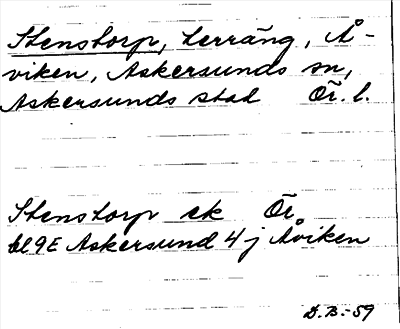 Stenstorp, terräng, Å-
viken, Askersunds sn,
Askersunds stad Ör. l.
Stenstorp ek Ör
bl 9E Askersund 4 j Åviken
D. B. - 59